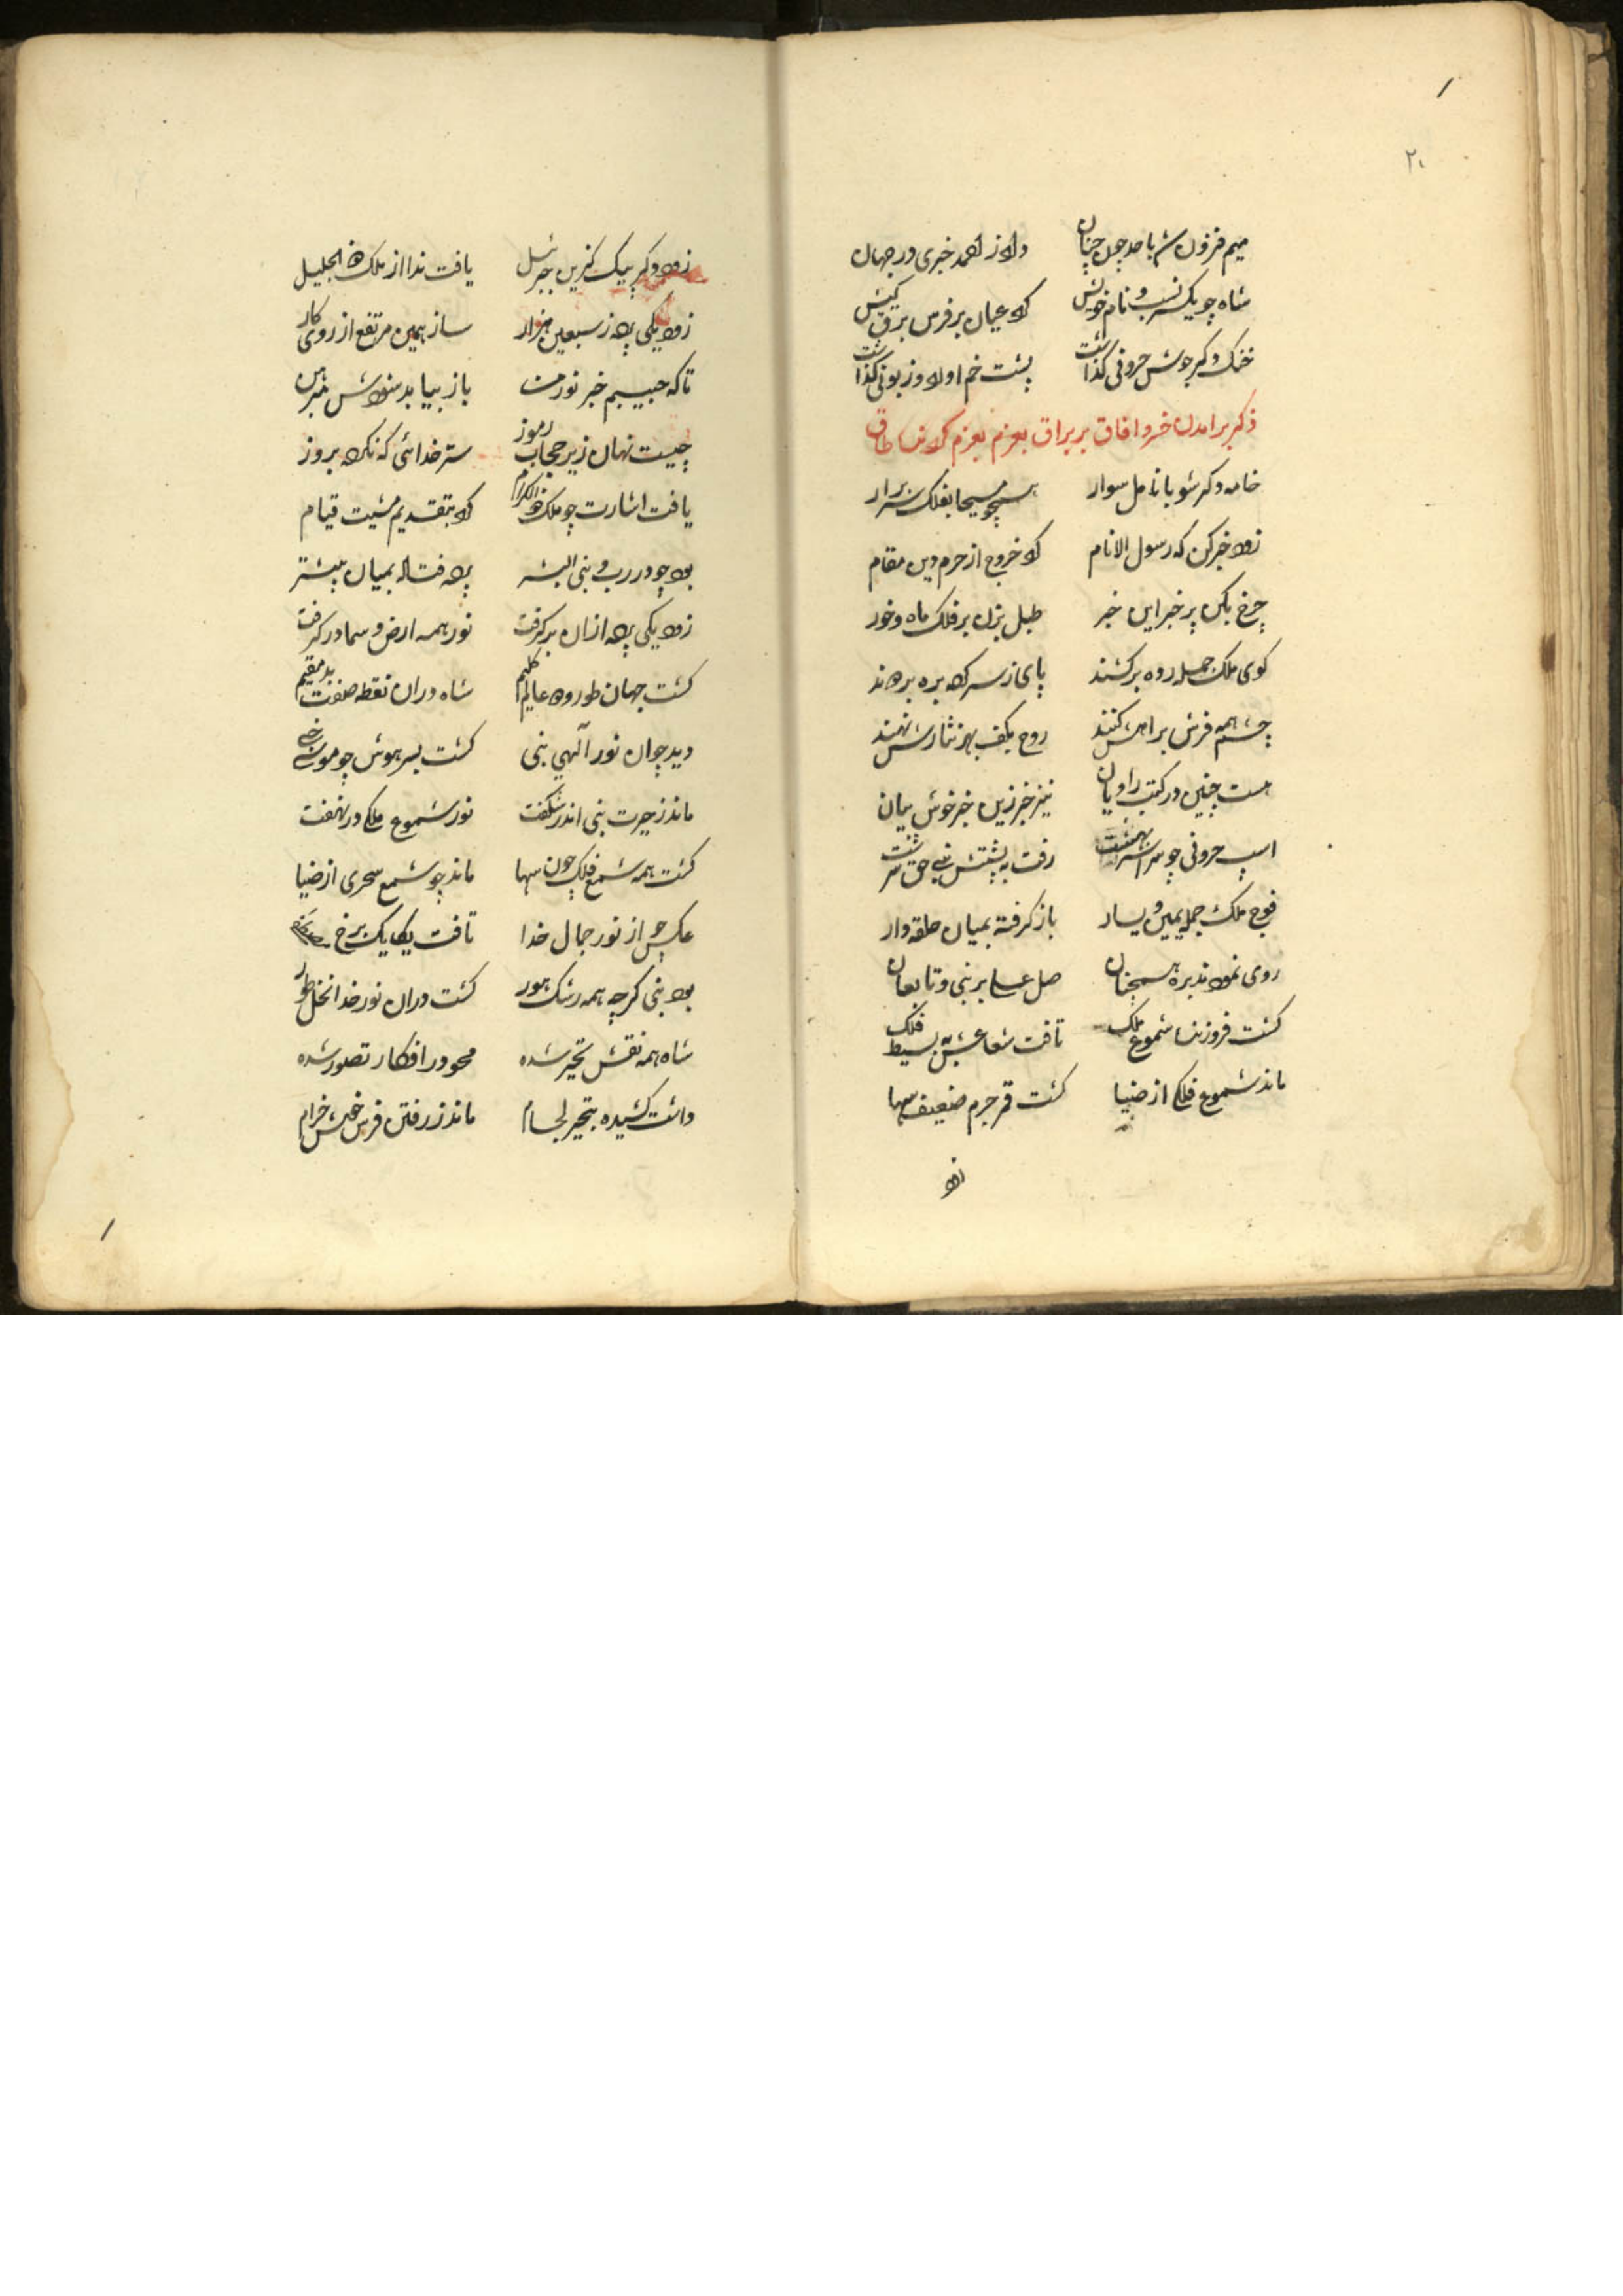 ۲۰
میم فزون شد باحد چون چنان داد ز احمد خبری در جهان
شاه چو یک نسب و نام خویش کرد عیان بر فرس برق کیش
خنک دکر جوشش حرونی کذاشت پشت خم اورد و زبونی کذاشت
ذکر برامدن خسرو افاق بر براق بعزم بعزم
خامه دکر شو بانامل سوار همچو مسیحا بفلک سر برار
زود خبر کن که رسول الانام کرد خروج از حرم دین مقام
چرخ بکن پر خبر این خبر طبل بزن بر فلک ماه و خور
کوی ملک جمله رده برکشند پای ز سر کرده بره برنهند
چشم همه فرش براهش کنند روح بکف بهر نثارش نهند
هست چنین در کتب راویان نیز خبر زین خبر خوش بیان
اسپ حرونی چو سراسر بهشت رفت به پشتش نبی حق سرشت
فوج ملک جمله یمین و یسار باز کرفته بمیان حلقه وار
روی نمودند بره همچنان صل علی بر نبی و تابعان
کشت فروزنده شموع ملک تافت شعاعش به بسیط فلک
ماند شموع فلکی از ضیا کشت قمر جرم ضعیف سها
زود
زود دکر پیک کزین جبرئیل یافت ندا از ملک ذو الجلیل
زود یکی پرده ز سبعین هزار ساز همین مرتفع از روی کار
تا که حبیبم خبر نور من باز بیابد
چیست نهان زیر حجاب رموز ستر خدائی که نکرده بروز
یافت اشارت چو ملک ذو الکرام کرد بتقدیم مشیت قیام
بود چو در رب و نبی البشر پرده فتاده بمیان پیشتر
زود یکی پرده ازان برکرفت نور همه ارض و سما درکرفت
کشت جهان طور و دران کلیم شاه دران نقطه صفت بد مقیم
دید چو ان نور الهی نبی کشت بسر هوش چو موسی
ماند ز حیرت نبی اندر شکفت نور شموع ملکی درنهفت
کشت همه شمع فلک چون سها ماند چو شمع سحری از ضیا
عکس چو از نور جمال خدا تافت یکایک برخ
بود نبی کرچه همه رشک هور کشت دران نور خدا نخل طور
شاه همه نقش تحیر شده محو در افکار تصور شده
داشت کشیده بتحیر لجام ماند ز رفتن فرس خوش خرام